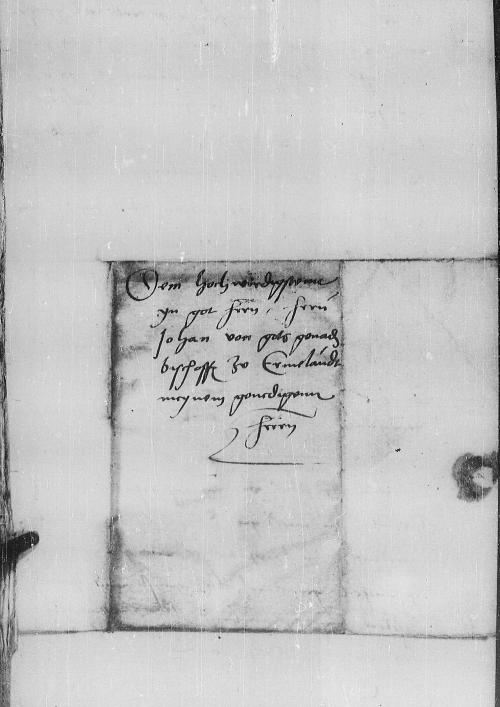 Dem hochwirdigstenn
yn got hern, hern
Johan von gots genad
bischoff zv Ermelandt
meynem genedigenn
Hern